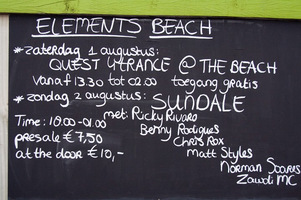 ELEMENTS BEACH
* zaterdag 1 augustus:
QUEST 4 TRANCE @ THE BEACH
vanaf 13.30 tot 02.00 toegang gratis
* zondag 2 augustus: SUNDALE
met: Ricky Rivaro
Time: 16:00-01:00
Benny Rodrigues
presale € 7,50
Chris Rox
at the door € 10,-
Matt Styles
Norman Soares
Zawdi MC